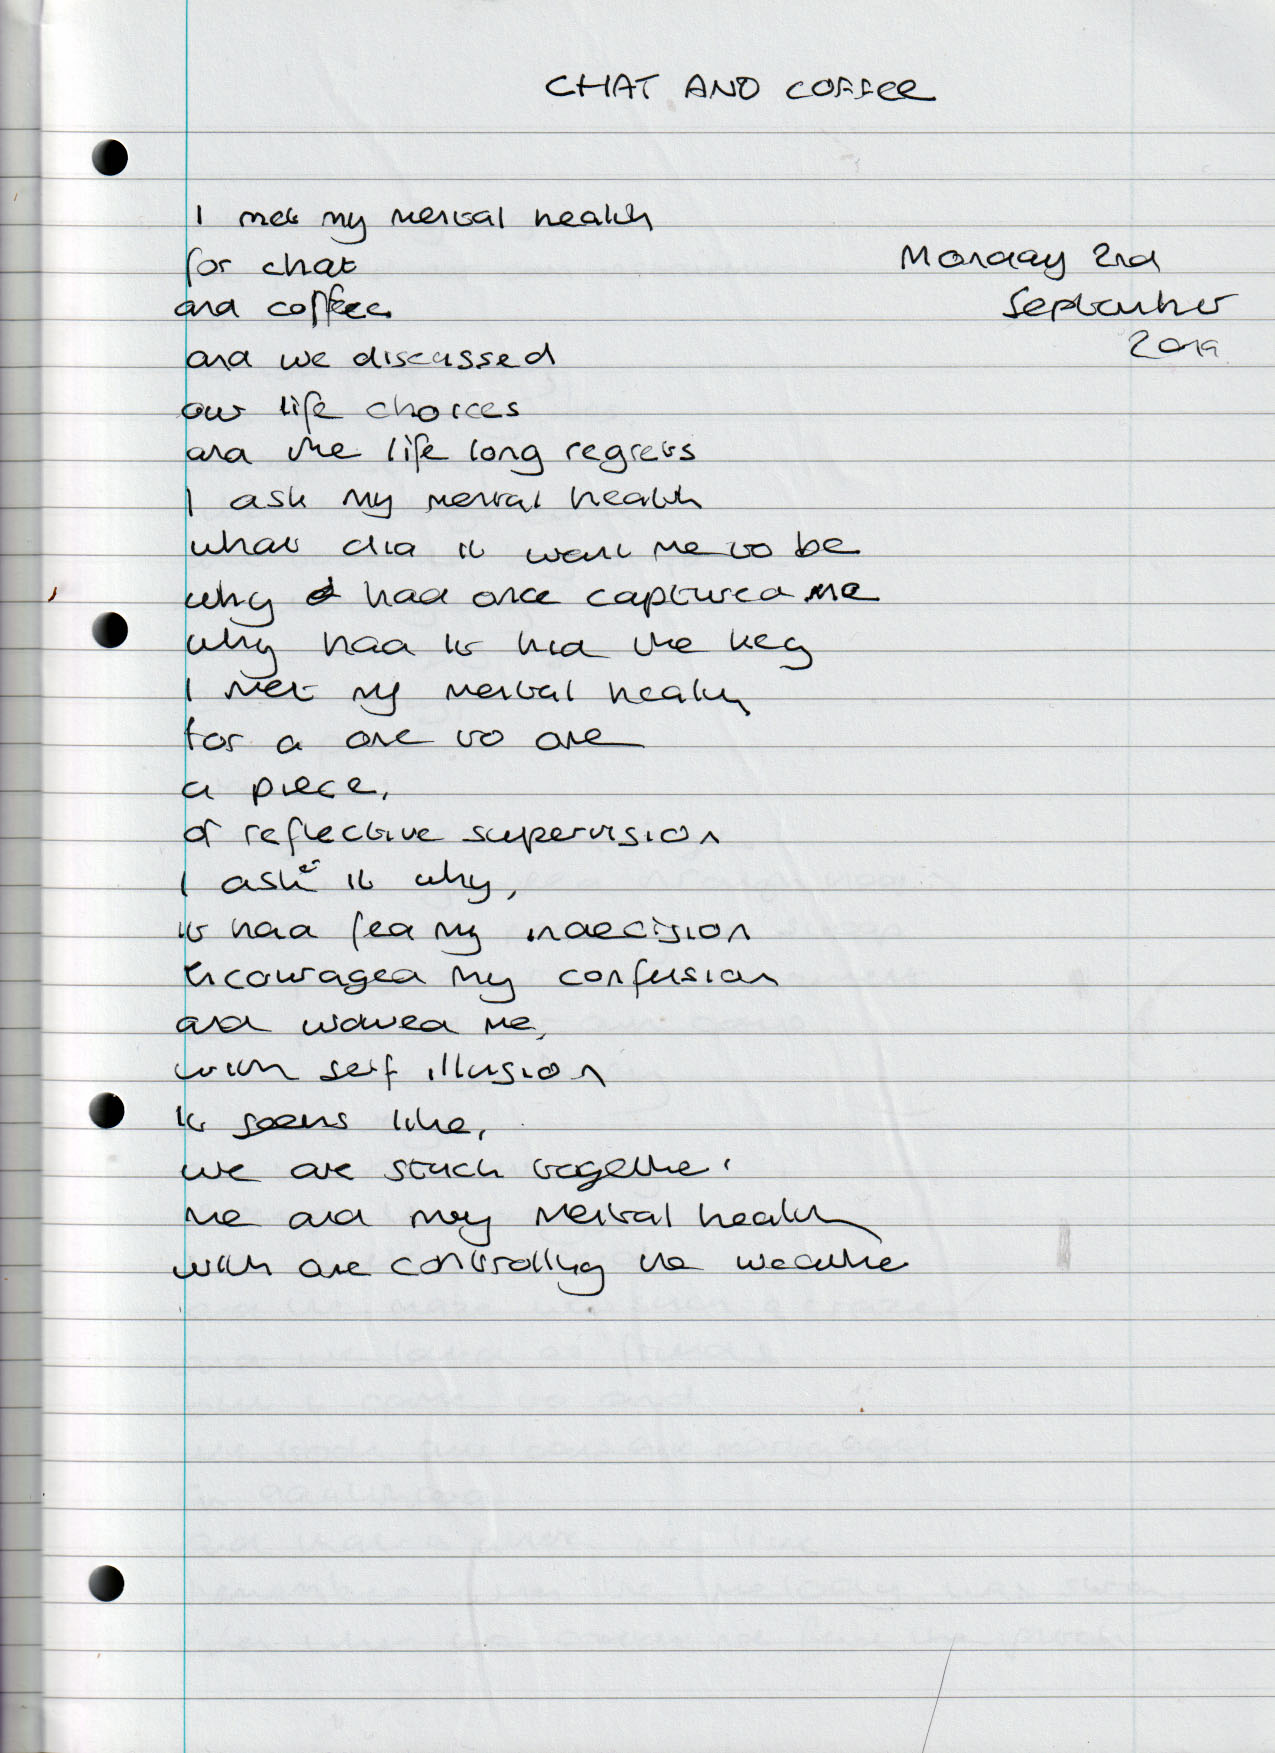 CHAT AND COFFEE
I met my mental health
for chat
Monday 2nd
and coffee
September
2019
and we discussed
our life choices
and the life long regrets
I ask my mental health
what did it want me to be
why had once captured me
why had it hid the key
I met my mental health
for a one to one
a piece,
of reflective supervision
I ask it why,
it had fed my indecision
encouraged my confusion
and wowed me,
with self illusion
it seems like,
we are stuck together
me and my mental health
with one controlling the weather